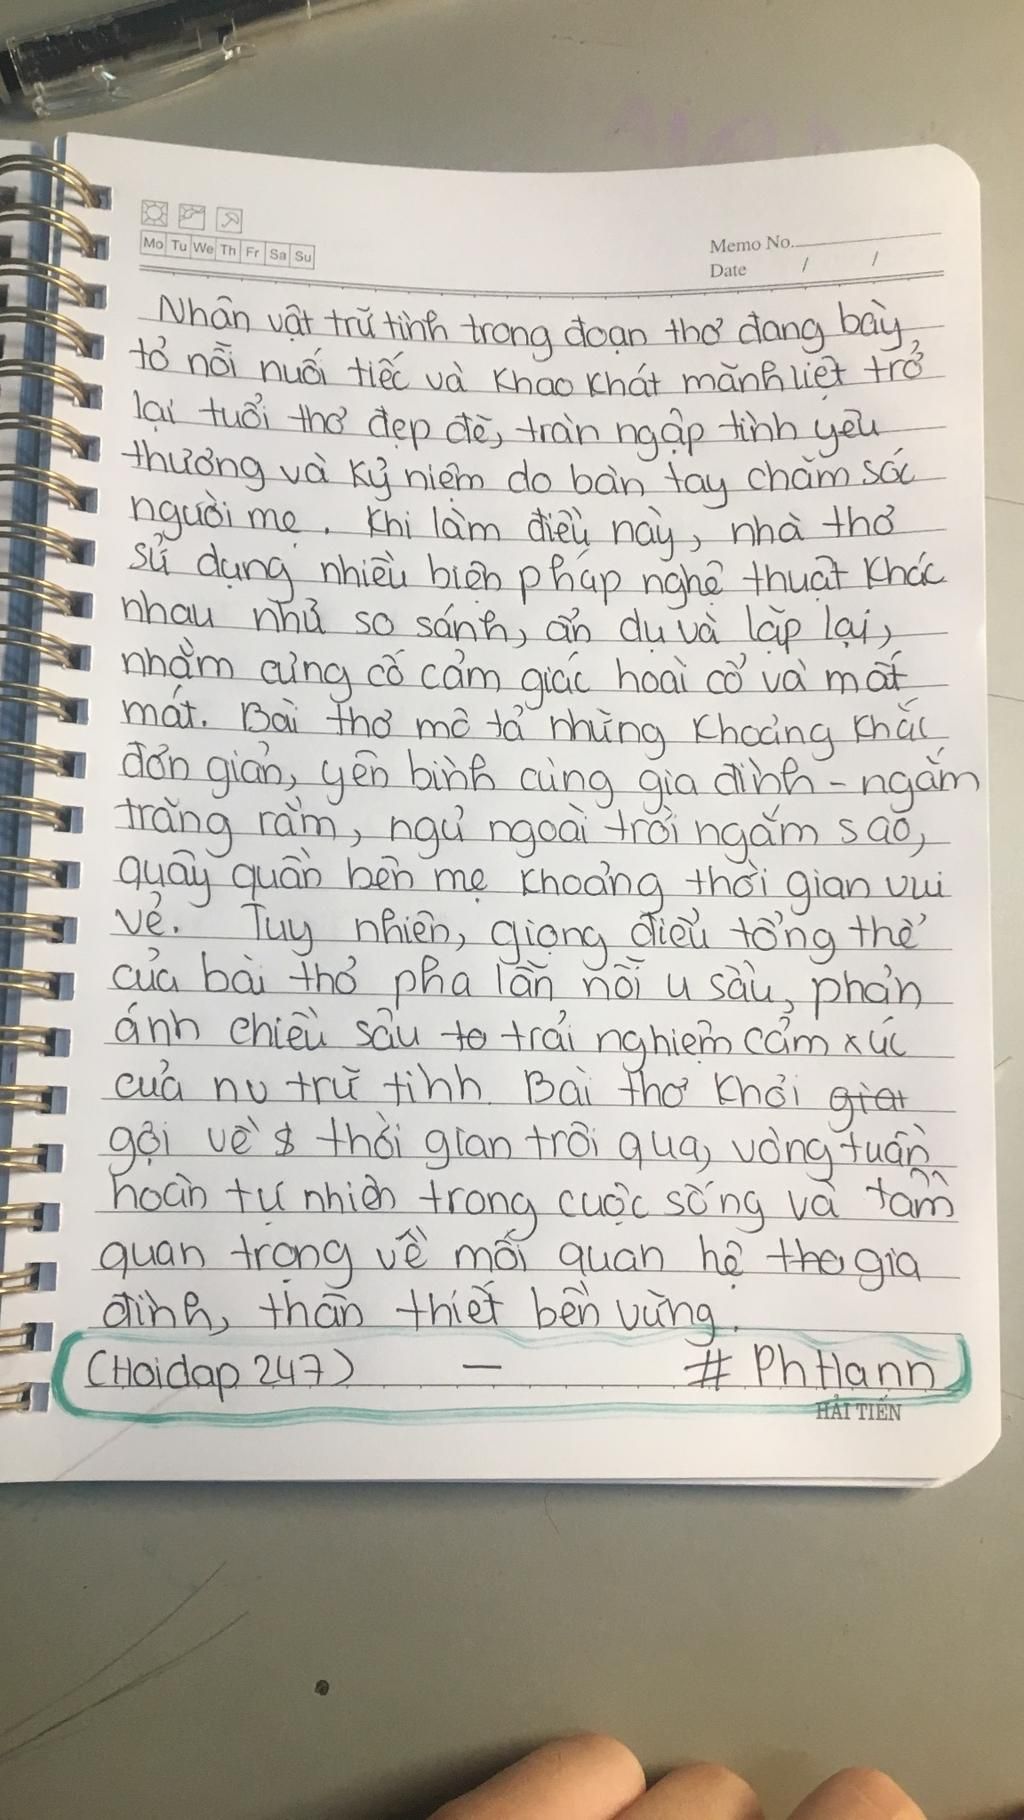 Mo Tu We Th Fr Sa Su
Memo No.
Date / /
Nhân vật trữ tình trong đoạn thơ đang bày
tỏ nỗi nuối tiếc và khao khát mãnh liệt trở
lại tuổi thơ đẹp đẽ, tràn ngập tình yêu
thương và kỷ niệm do bàn tay chăm sóc
người mẹ. Khi làm điều này, nhà thơ
sử dụng nhiều biện pháp nghệ thuật khác
nhau như so sánh, ẩn dụ và lặp lại,
nhằm củng cố cảm giác hoài cổ và mất
mát. Bài thơ mô tả những khoảng khắc
đơn giản, yên bình cùng gia đình - ngắm
trăng rằm, ngủ ngoài trời ngắm sao,
quây quần bên mẹ khoảng thời gian vui
vẻ. Tuy nhiên, giọng điệu tổng thể
của bài thơ pha lẫn nỗi u sầu, phản
ánh chiều sâu to trải nghiệm cảm xúc
của nv trữ tình. Bài thơ khơi giot
gợi về s thời gian trôi qua, vòng tuần
hoàn tự nhiên trong cuộc sống và tầm
quan trọng về mối quan hệ tho gia
đình, thân thiết bền vững.
(Hoidap 247) — # PhHann
HẢI TIẾN